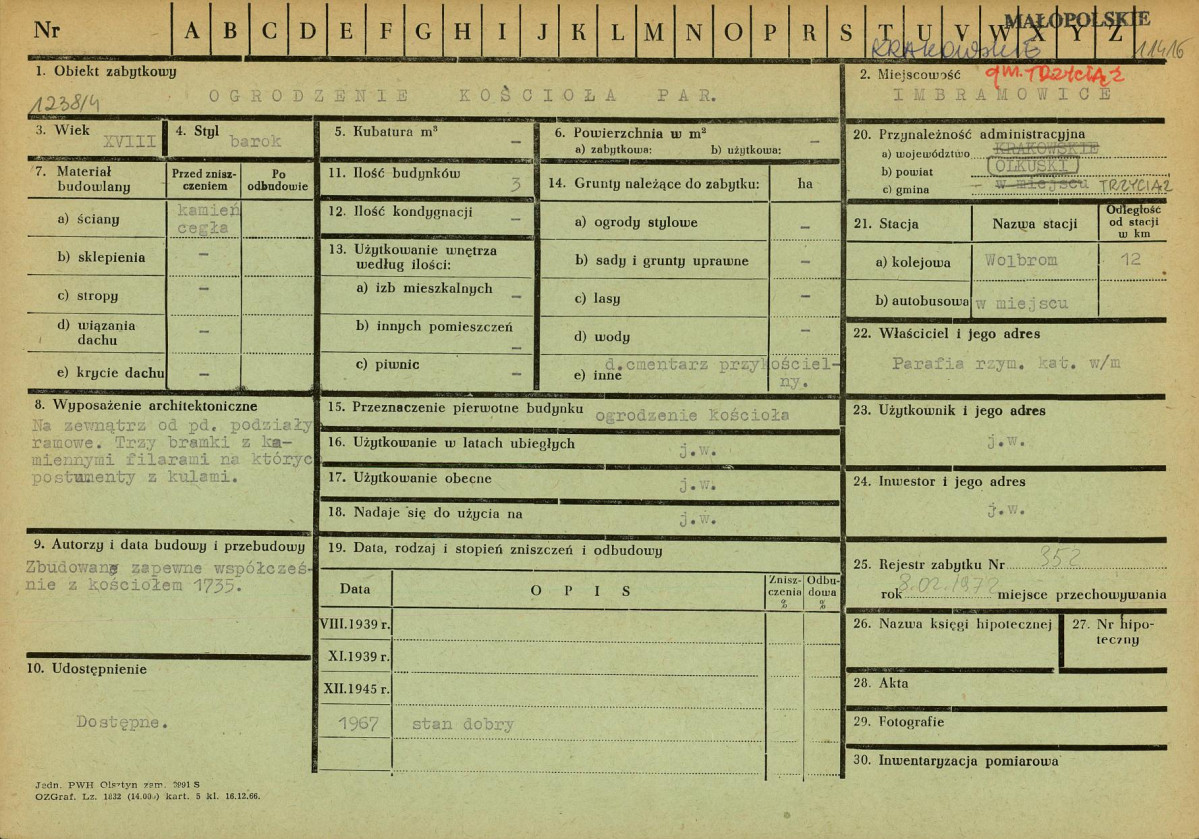 Nr A B C D E F G H I J K L M N O P R S T U V W X Y Z
MAŁOPOLSKIE
KRAKOWSKIE 11416
1. Obiekt zabytkowy
1238/4
OGRODZENIE KOŚCIOŁA PAR.
2. Miejscowość gm. TRZYCIĄŻ
IMBRAMOWICE
3. Wiek
XVIII
4. Styl
barok
5. Kubatura m³
-
6. Powierzchnia w m²
a) zabytkowa: b) użytkowa: -
7. Materiał
budowlany
Przed znisz-
czeniem
Po
odbudowie
a) ściany kamień
cegła
b) sklepienia -
c) stropy -
d) wiązania
dachu -
e) krycie dachu -
8. Wyposażenie architektoniczne
Na zewnątrz od pd. podziały
ramowe. Trzy bramki z ka-
miennymi filarami na któryc
postumenty z kulami.
9. Autorzy i data budowy i przebudowy
Zbudowane zapewne współcześ-
nie z kościołem 1735.
10. Udostępnienie
Dostępne.
11. Ilość budynków 3
12. Ilość kondygnacji -
13. Użytkowanie wnętrza
według ilości:
a) izb mieszkalnych -
b) innych pomieszczeń -
c) piwnic -
14. Grunty należące do zabytku: ha
a) ogrody stylowe -
b) sady i grunty uprawne -
c) lasy -
d) wody
e) inne d.cmentarz przykościel-
ny.
15. Przeznaczenie pierwotne budynku ogrodzenie kościoła
16. Użytkowanie w latach ubiegłych j.w.
17. Użytkowanie obecne j.w.
18. Nadaje się do użycia na j.w.
19. Data, rodzaj i stopień zniszczeń i odbudowy
Data OPIS Znisz-
czenia
% Odbu-
dowa
%
VIII.1939 r.
XI.1939 r.
XII.1945 r.
1967 stan dobry
20. Przynależność administracyjna
a) województwo KRAKOWSKIE
b) powiat OLKUSKI
c) gmina w miejscu TRZYCIĄŻ
21. Stacja Nazwa stacji Odległość
od stacji
w km
a) kolejowa Wolbrom 12
b) autobusowa w miejscu
22. Właściciel i jego adres
Parafia rzym. kat. w/m
23. Użytkownik i jego adres
j.w.
24. Inwestor i jego adres
j.w.
25. Rejestr zabytku Nr 352
rok 8.02.1972 miejsce przechowywania
26. Nazwa księgi hipotecznej
27. Nr hipo-
teczny
28. Akta
29. Fotografie
30. Inwentaryzacja pomiarowa
Jedn. PWH Olsztyn zam. 2991 S
OZGraf. Lz. 1832 (14.000) kart. 5 kl. 16.12.66.